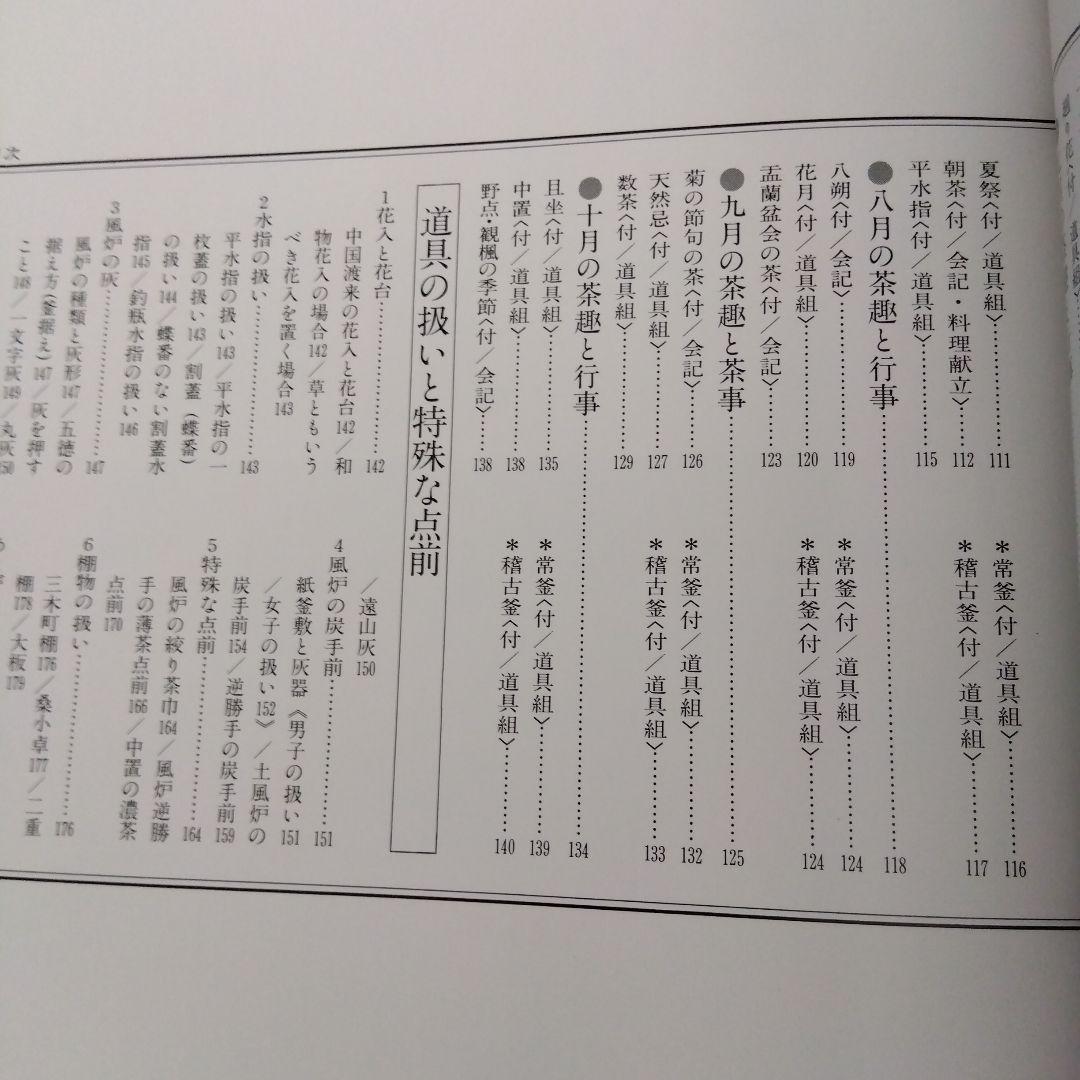 夏祭〈付／道具組〉……111
朝茶〈付／会記・料理献立〉……112
平水指〈付／道具組〉……115
＊常釜〈付／道具組〉……116
＊稽古釜〈付／道具組〉……117
●八月の茶趣と行事……118
八朔〈付／会記〉……119
花月〈付／道具組〉……120
盂蘭盆会の茶〈付／会記〉……123
＊常釜〈付／道具組〉……124
＊稽古釜〈付／道具組〉……124
●九月の茶趣と茶事……125
菊の節句の茶〈付／会記〉……126
天然忌〈付／道具組〉……127
数茶〈付／道具組〉……129
＊常釜〈付／道具組〉……132
＊稽古釜〈付／道具組〉……133
●十月の茶趣と行事……134
且坐〈付／道具組〉……135
中置〈付／道具組〉……138
野点・観楓の季節〈付／会記〉……138
＊常釜〈付／道具組〉……139
＊稽古釜〈付／道具組〉……140
道具の扱いと特殊な点前
1 花入と花台……142
中国渡来の花入と花台 142／和
物花入の場合 142／草ともいう
べき花入を置く場合 143
2 水指の扱い……143
平水指の扱い 143／平水指の一
枚蓋の扱い 143／割蓋（蝶番）
の扱い 144／蝶番のない割蓋水
指 145／釣瓶水指の扱い 146
3 風炉の灰……147
風炉の種類と灰形 147／五徳の
据え方（釜据え）147／灰を押す
こと 148／一文字灰 149／丸灰
150
／遠山灰 150
4 風炉の炭手前……151
紙釜敷と灰器《男子の扱い 151
／女子の扱い 152》／土風炉の
炭手前 154／逆勝手の炭手前 159
5 特殊な点前……164
風炉の絞り茶巾 164／風炉逆勝
手の薄茶点前 166／中置の濃茶
点前 170
6 棚物の扱い……176
三木町棚 176／桑小卓 177／二重
棚 178／大板 179
次